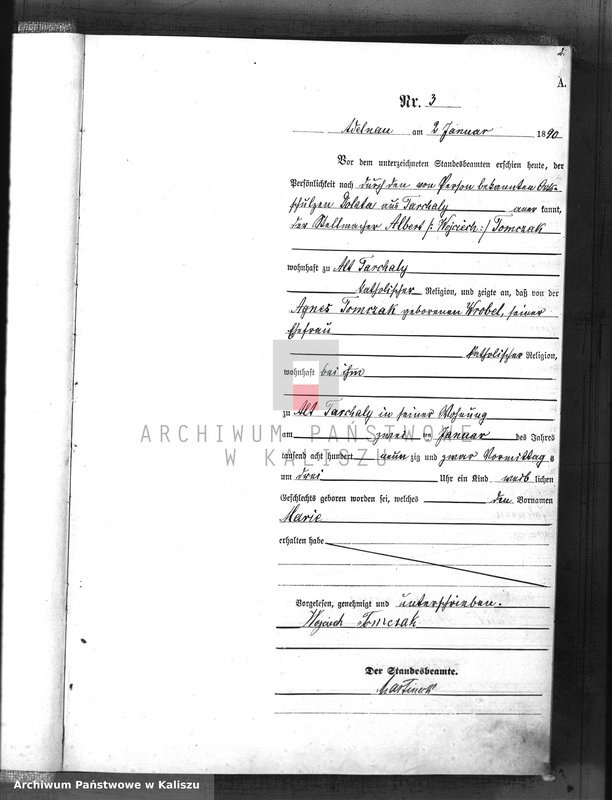 A.
Nr. 3
Adelnau am 2 Januar 1890
Vor dem unterzeichneten Standesbeamten erschien heute, der
Persönlichkeit nach durch den von Person bekannten Orts-
schulzen Dolata aus Tarchaly aner kannt,
der Stellmacher Albert /: Wojciech :/ Tomczak
wohnhaft zu Alt Tarchaly
katholischer Religion, und zeigte an, daß von der
Agnes Tomczak geborenen Wrobel, seiner
Ehefrau
katholischer Religion,
wohnhaft bei ihm
zu Alt Tarchaly in seiner Wohnung
am zwei ten Januar des Jahres
tausend acht hundert neun zig und zwar Vormittag s
um drei Uhr ein Kind weib lichen
Geschlechts geboren worden sei, welches den Vornamen
Marie
erhalten habe
Vorgelesen, genehmigt und unterschrieben.
Wojciech Tomczak
Der Standesbeamte.
ARCHIWUM PAŃSTWOWE
W KALISZU
Archiwum Państwowe w Kaliszu